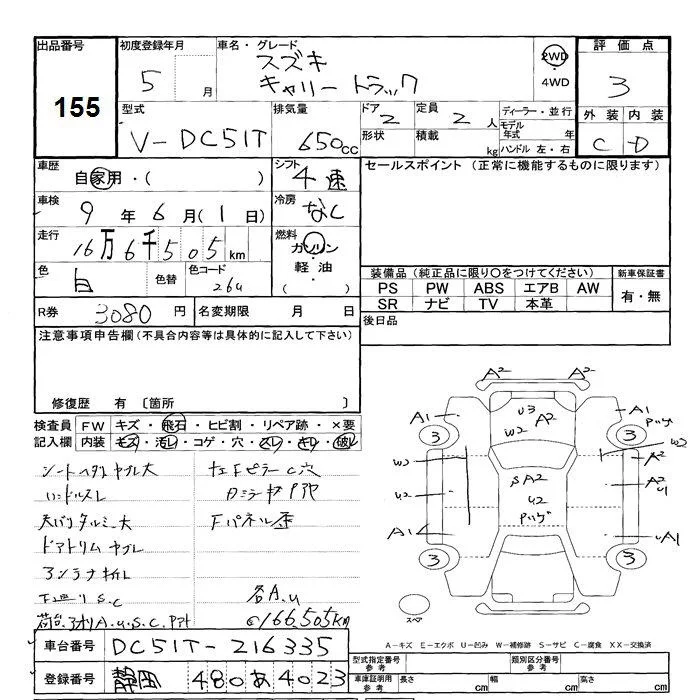 出品番号
155
初度登録年月
5 月
車名・グレード
スズキ
キャリートラック
2WD
・
4WD
評価点
3
外装 内装
C D
型式
V-DC51T
排気量
650cc
ドア
2
定員
2人
形状
積載
kg
ディーラー・並行
モデル
年式 年
ハンドル 左・右
車歴
自家用・( )
シフト
4速
セールスポイント (正常に機能するものに限ります)
車検
9年6月(1日)
冷房
なし
走行
16万6千505km
燃料
ガソリン
・
軽油
( )
色
白
色替
色コード
26u
装備品(純正品に限り○をつけてください)
新車保証書
PS PW ABS エアB AW
SR ナビ TV 本革
有・無
R券 3080円
名変期限 月 日
後日品
注意事項申告欄(不具合内容等は具体的に記入して下さい)
修復歴 有 〔箇所
検査員 FW キズ・飛石・ヒビ割・リペア跡・×要
記入欄 内装 モズ・汚レ・コゲ・穴・スレ・キレ・破レ
シートヘタリヤブレ大
ハンドルスレ
ドアトリムヤブレ
S.C
各A.U
Fパネル歪
◎166,505km
A2 A2
A1 A1
3 3
U3
W2 A2
W2 W2
A2
A2
U1
U2
SA2
U2
A1 UA1
3 3
スペア
A-キズ E-エクボ U-凹み W-補修跡 S-サビ C-腐食 XX-交換済
車台番号 DC51T-216335
登録番号 静岡 480 あ 4023
型式指定番号
参考
類別区分番号
参考
車庫証明用
参考
長さ cm
幅 cm
高さ cm